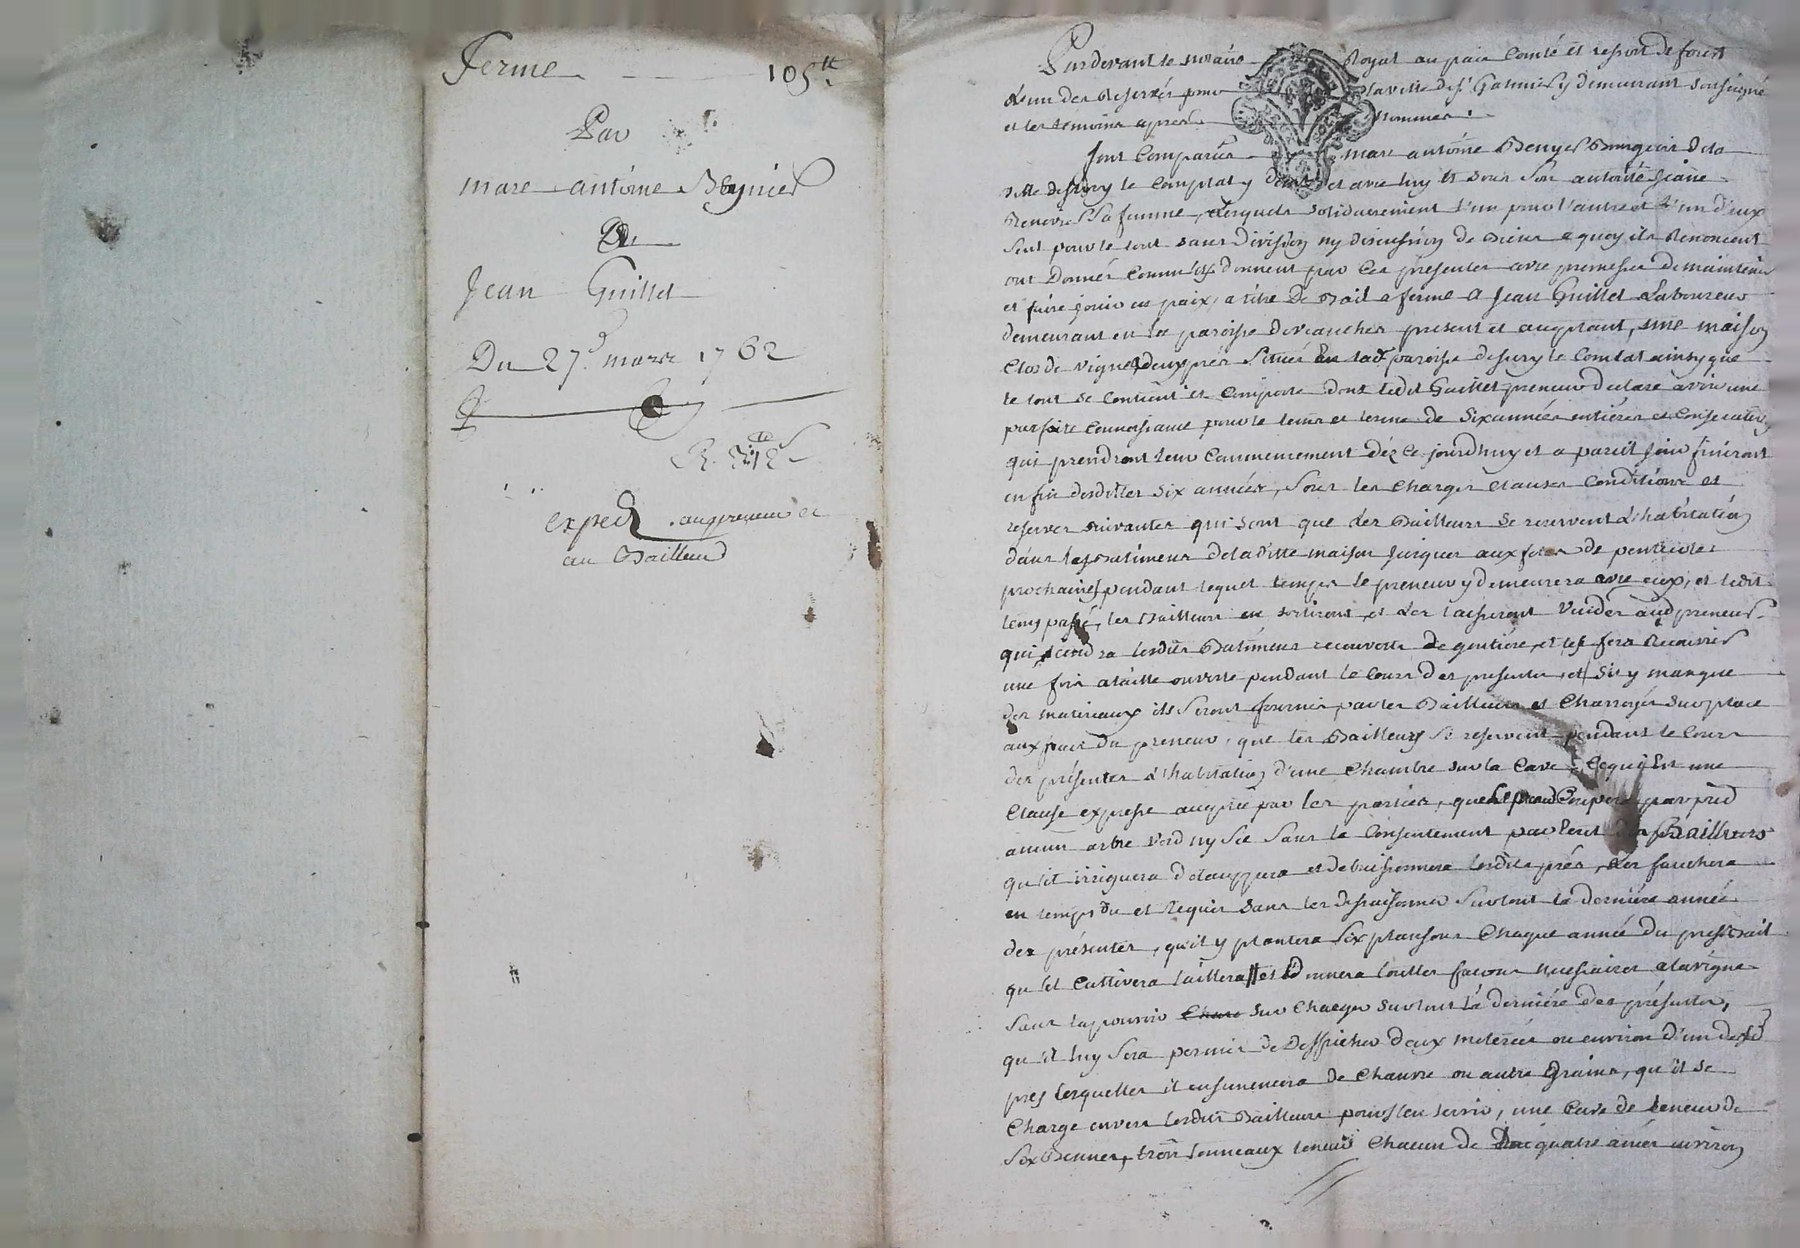 Ferme 105 tt
Par
marc antoine Beynier
A
Jean Guillet
Du 27e. mars 1762
exped. au preneur et
au Bailleur
Pardevant le notaire Royal au païs Comté et ressort de forest
L'un des Reservés pour la ville de St. Galmier y demeurant soussigné
et les temoins apres nommes.
sont Comparus marc antoine Benyer Bourgeois de la
ville de sury le Comptal y demt. et avec luy et sous son autorité jeane
sa femme, lesquels solidairement l'un pour l'autre et l'un d'eux
seul pour le tout sans division ny discussion de biens a quoy ils Renoncent
ont Donnés Comme ils donnent par Ces presentes avec promesse de maintenir
et faire jouir en paix, a titre De Bail a ferme a Jean Guillet Laboureur
demeurant en la paroisse de veauches present et acceptant, une maison
Clos de vigne, deux prés situés en lad. paroisse de sury le Comtal ainsy que
le tout se Contient et Comporte dont ledit Guillet preneur declare avoir une
parfaite Connoissance pour le tems et terme de six années entieres et Consecutives
qui prendront leur Commencement dèz ce jourd'huy et a pareil jour finiront
en fin desdittes six années, sous les Charges Clauses Conditions et
reserves suivantes qui sont que les Bailleurs se reservent L'habitation
dans les Batimens de laditte maison jusques aux fetes de pentecotes
prochaines pendant lequel temps le preneur y demeurera avec eux, et ledit
temps passé, les Bailleurs en sortiront, et les laisseront Vuides aud. preneur
qui tiendra lesdits Batimens recouverts de goutiere, et les fera Recouvrir
une fois a taille ouverte pendant le Cours des presentes, et s'il y manque
des materiaux ils seront fournis par les Bailleurs et Charroyés sur place
aux frais du preneur, que les Bailleurs se reservent pendant le Cours
des présentes L'habitation d'une Chambre sur la Cave, Ce qui Est une
Clause expresse acceptée par les parties, que le preneur Coupera par pied
aucun arbre Verd ny sec sans le Consentement par Ecrit des Bailleurs
qu'il irriguera etaupera et debuissonnera lesdits prés, Les fauchera
en temps Du et Requis sans les dessaisonner surtout la derniére année
des présentes, qu'il y plantera six plansons Chaque année du present Bail
qu'il Cultivera taillera et Donnera touttes façons necessaires a la vigne
sans la pouvoir sur Charger surtout la derniére des présentes,
qu'il luy sera permis de Deffricher deux meterées ou environ d'un desd.
prés lesquelles il ensemencera de Chanvre ou autre Grains, qu'il se
Charge envers lesdits Bailleurs pour s'en servir, une Cuve de teneur de
six Bennes, trois tonneaux teneur Chacun de quatre anées environ